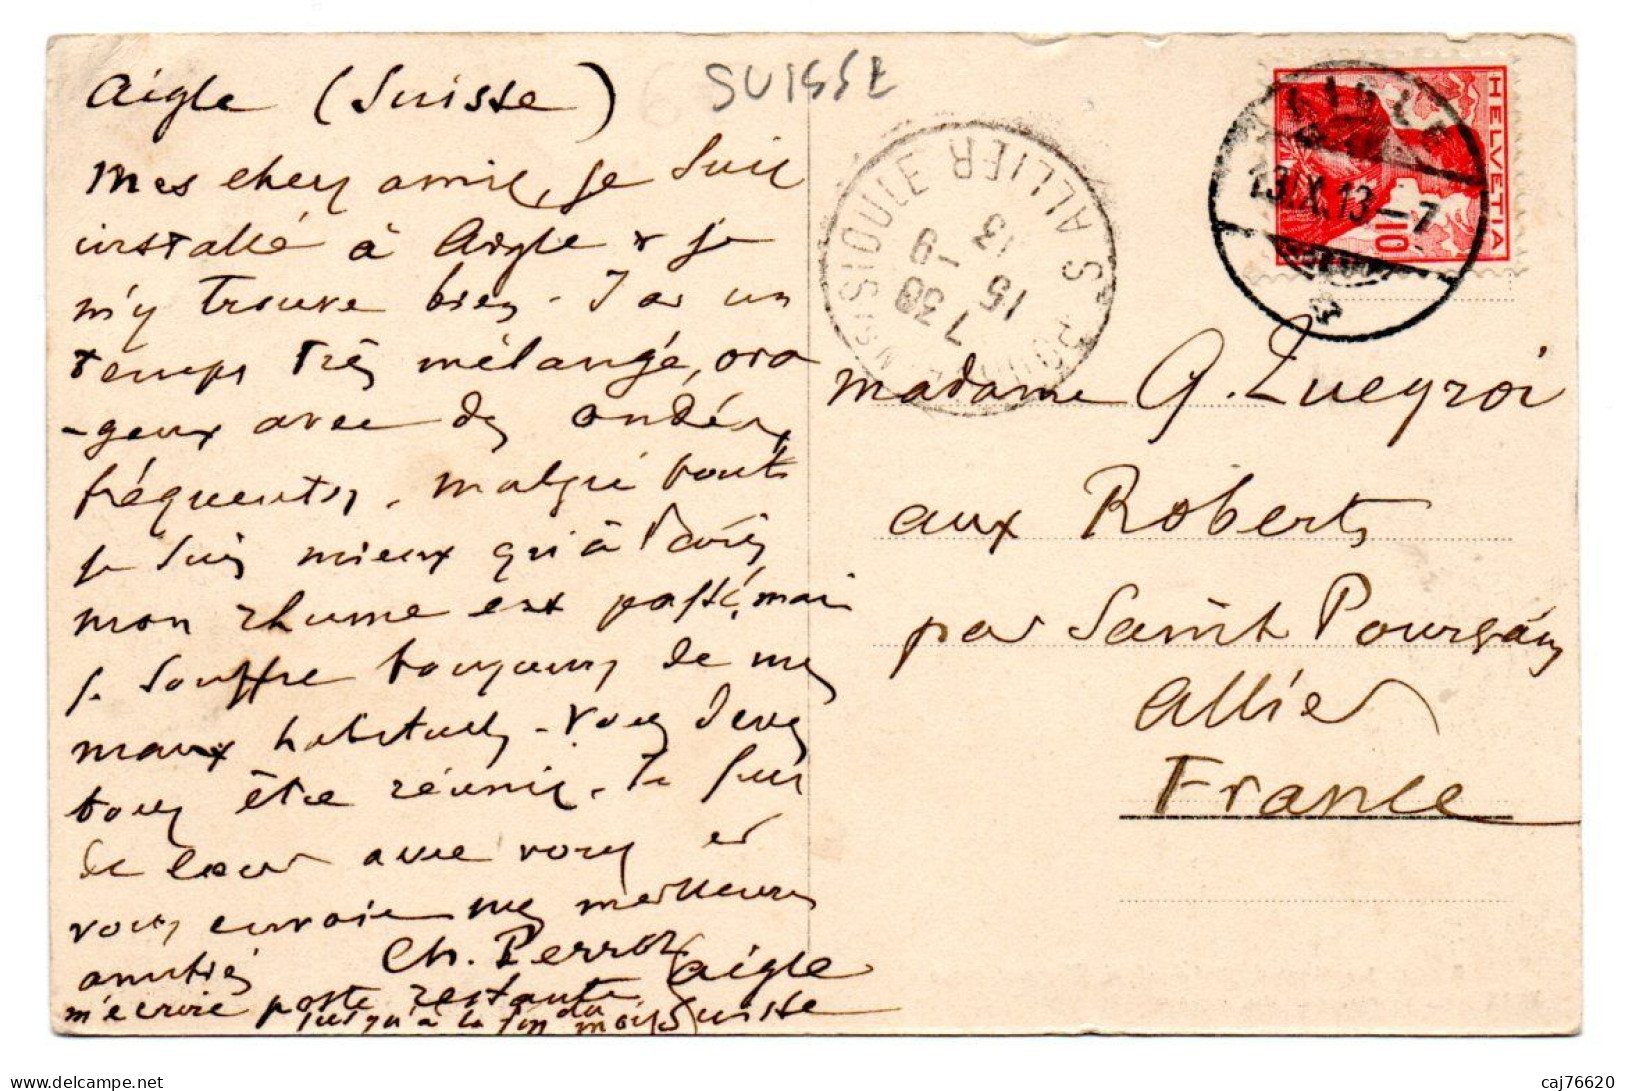 SUISSE
Aigle (Suisse)
Mes chers amis, je suis
installé à Aigle & je
m'y trouve bien - J'ai un
temps très mélangé, ora
-geux avec des ondées
fréquentes, malgré tout
je suis mieux qu'à Paris
mon rhume est passé, mais
je souffre toujours de mes
maux habituels - Vous devez
tous être réunis. Je suis
de cœur avec vous et
vous envoie mes meilleures
amitiés Ch. Perrot
m'écrire poste restante Aigle
jusqu'à la fin du mois Suisse
HELVETIA
10
AIGLE
13.IX.13-7
ST POURÇAIN S SIOULE ALLIER
7 30
15 -9
13
Madame G. Zueyroi
aux Roberts
par Saint Pourçain
Allier
France
caj76620